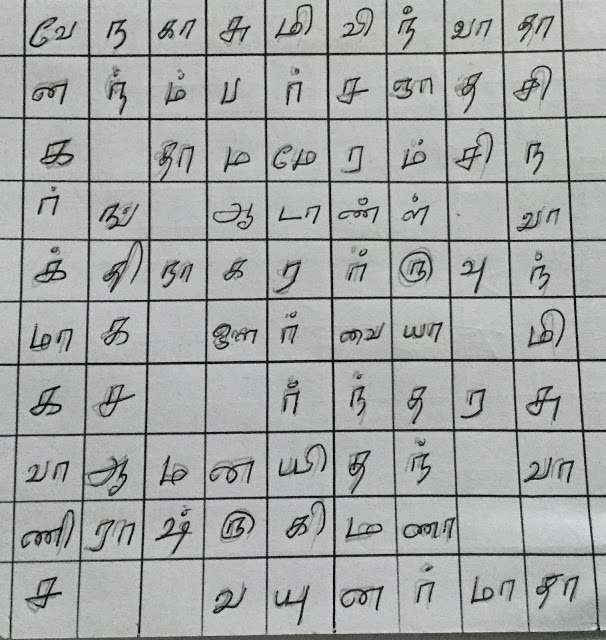 வே ந கா சு மி வி ந் வா தா
ன ந் ம் ப ர் ச னா த சி
க தா ம மே ர ம் சி ந
ர் ங ஆ டா ண் ள் வா
க் தி நா க ர ர் ரு வு ந்
மா க ஊ ர் வை யா மி
க ச ர் ந் த ர சு
வா ஆ ம ன யி த ந் வா
ணி ரா ஷ் ரு கி ம ணா
ச வ யு ன ர் மா தா